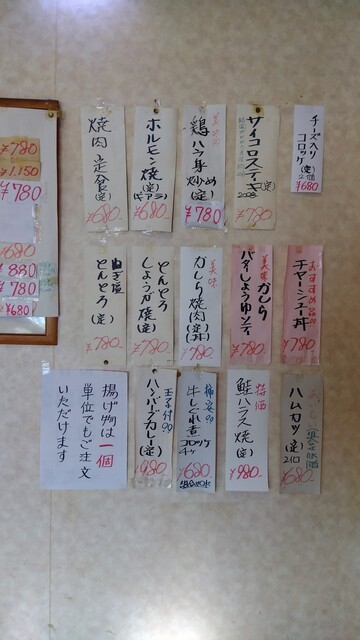 チーズ入り
コロッケ(定)
2個
¥680
サイコロステーキ(定)
200g
¥780
美味の
鶏ハラ身
炒め(定)
¥780
ホルモン焼(定)
(ギアラ)
¥680
焼肉定食(定)
¥680
おすすめ品!!
チャーシュー丼
¥780
美味
かしら
バターしょうゆソテー
¥780
美味
かしら焼肉(定)(丼)
¥780
とんとろ
しょうが焼(定)
¥780
ねぎ塩
とんとろ(定)
¥780
ハムカツ(定)
2個
¥680
特価
鮭ハラス焼(定)
¥980
牛しぐれ煮
コロッケ
¥680
玉子付
ハンバーグカレー(定)
¥980
揚げ物は一個
単位でもご注文
いただけます
¥780
¥1.150
¥780
¥680
¥880
¥780
¥680